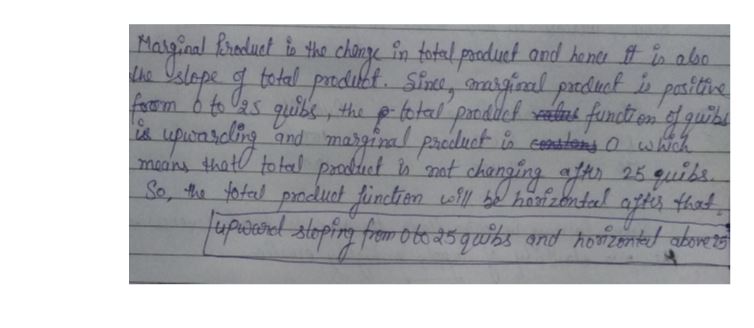 Marginal Product is the change in total product and hence it is also
the slope of total product. Since, marginal product is positive
from 0 to 25 quibs, the total product function of quibs
is upwarding and marginal product is 0 which
means that total product is not changing after 25 quibs.
So, the total product function will be horizontal after that.
upward sloping from 0 to 25 quibs and horizontal above 25